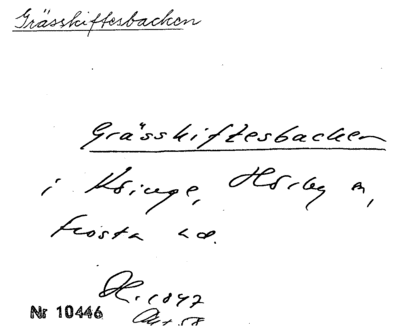 Grässkiftesbacken
Grässkiftesbacken
i Kringe, Hörby s,
Frosta hd.
1847
Nr 10446